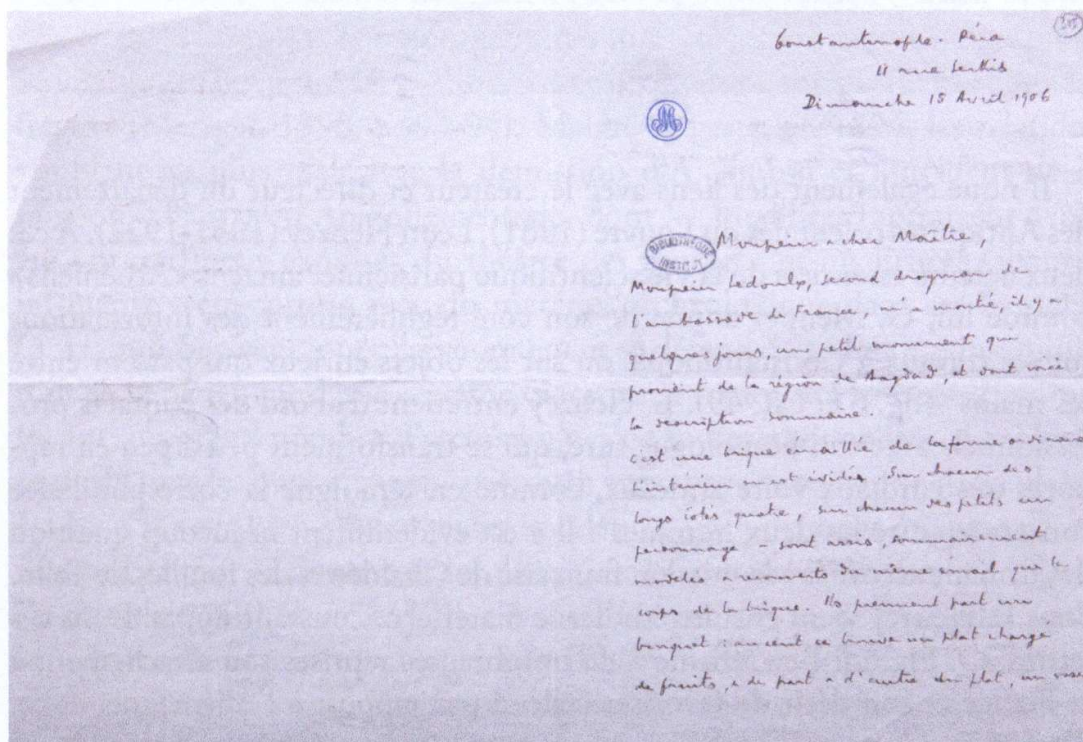 305
Constantinople. Péra
11 rue Serkis
Dimanche 15 Avril 1906
BIBLIOTHÈQUE
INSTITUT
Monsieur et cher Maître,
Monsieur Ledoulx, second drogman de
l'ambassade de France, m'a montré, il y a
quelques jours, un petit monument qui
provient de la région de Bagdad, et dont voici
la description sommaire.
C'est une brique émaillée de la forme ordinaire
L'intérieur en est évidé. Sur chacun des
longs côtés quatre, sur chacun des petits un
personnage - sont assis, sommairement
modelés et recouverts du même émail que le
corps de la brique. Ils prennent part un
banquet au centre se trouve un plat chargé
de fruits, et de part et d'autre du plat, un vase